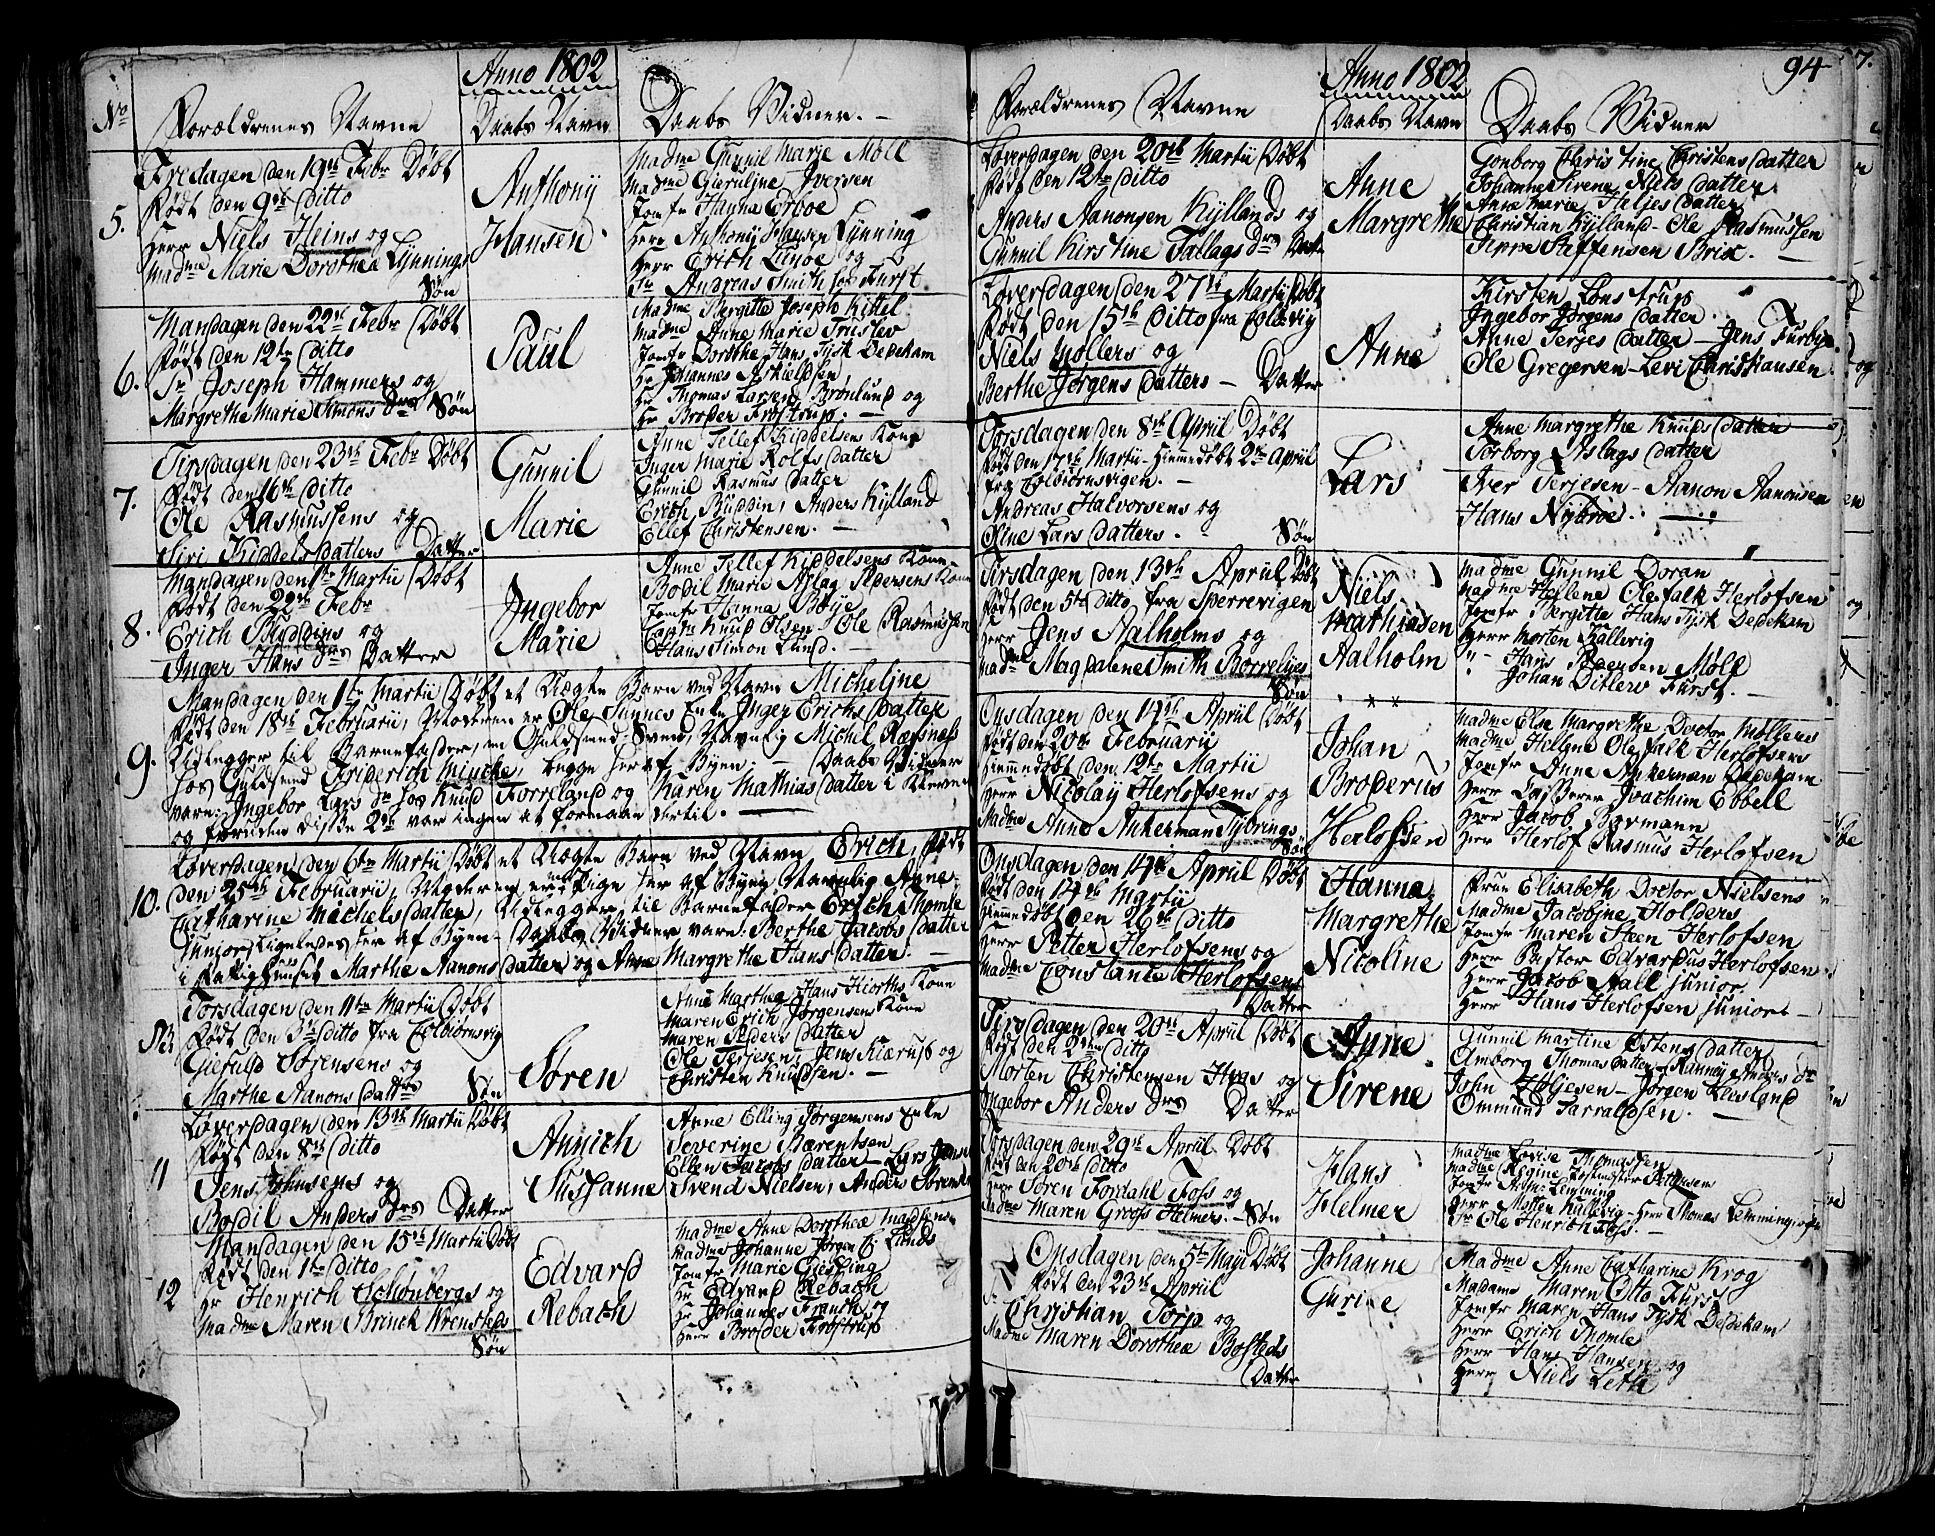 Anno 1802
No
Forældrenes Navne
Daabs Navn
Daabs Vidner. -
5.
Fredagen den 19de Febr Døbt
Født den 9de Ditto
Herr Niels Heins og
Madme Marie Dorothea Lynnings
Søn
Anthonÿ
Hansen
Madme Gunnil Marie Moll
Madme Gieruljne Iversen
Jomfr Hanna Erboe
Herr Anthonij Hansen Lynning
Herr Erich Lunoe og
Sr Andreas Smith for Furst
6.
Mandagen den 22de Febr Døbt
Født den 12te Ditto
Sr Joseph Hammers og
Margrethe Marie Simons drs Søn
Paul
Madme Bergitte Joseph Kittel
Madme Anne Marie Truslev
Jomfr Dorothe Hans Tijsk Dedekam
Hr Johannes Askieldsen
Hr Thomas Larsen Brønlund og
Hr Broder Frostrup. -
7.
Tirsdagen den 23de Febr Døbt
Født den 16de Ditto
Ole Rasmussens og
Siri Kiddels Datters Datter
Gunnil
Marie
Anne Tellef Kiddelsens Kone
Inger Marie Rolfs Datter
Gunnil Rasmus Datter
Erich Buddin, Anders Kÿlland
Ellef Christensen. -
8.
Mandagen den 1te Martii Døbt
Født den 22de Febr
Erich Buddins og
Inger Hans drs Datter
Ingebor
Marie
Anne Tellef Kiddelsens Kone
Bodil Marie Aslag Pedersens Kone
Jomfr Hanna Boÿe
Captn Knud Olsen - Ole Rasmussen
Hans Simon Lund. -
9.
Mandagen den 1te Martii Døbt et Uægte Barn ved Navn Micheljne
Født den 18de Februarii, Moderen er Ole Tunnes Enke Inger Erichs Datter
Udlegger til Barnefader, en Guldsmed Svend, Navnlig Michel
hos Guldsmed Friderich Mincke, begge her af Byen: - Daabs Vidner
vare: Ingebor Lars dr hos Knud Torreland og Karen Mathias Datter i
og foruden disse 2de var ingen at formaae dertil.
10.
Løverdagen den 6te Martii Døbt et Uægte Barn ved Navn Erich, Født
den 25de Februarii, Moderen en Pige her af Byen Navnlig Anne
Catharine Michels Datter, Udlegger til Barnefader Erich Thomle
Junior, ligeledes her af Byen - Daabs Vidner vare: Berthe Jacobs Datter
i Fattighuuset Marthe Aanons Datter og Anne Margrethe Hans Datter. -
Torsdagen den 11te Martii Døbt
Født den 3de Ditto fra Colbiornsvig
Gieruld Sørensens og
Marthe Aanons Dattrs Søn
Søren
Anne Marthea Hans Hiorths Kone
Maren Erich Jørgensens Kone
Maren Peders Datter
Ole Terjesen, Jens Kiærulf og
Christen Knudsen. -
11
Løverdagen den 13de Martii Døbt
Født den 8de Ditto
Jens Johnsens og
Bodil Anders drs Datter
Annich
Susanne
Anne Elling Jørgensens Enke
Severine Bærentsen
Ellen Jacobs Datter - Lars Jensen
Svend Nielsen, Anders Sørensen
12
Mandagen den 15de Martii Døbt
Født den 1te Ditto
Hr Henrich Schønbergs og
Madme Maren Brinch Wrensteds
Søn
Edvard
Rebach
Madme Anne Dorothea Madsen
Madme Johanne Jørgen Lunds
Jomfr Marie Giesling
Hr Edvard Rebach
Hr Johannes Franch og
Herr Broder Frostrup
94
Anno 1802
Forældrenes Navne
Daabs Navn
Daabs Vidner
Løverdagen den 20de Martii Døbt
Født den 12te Ditto
Anders Aanonsen Kÿllands og
Gunnil Kirstine Tallags drs Datter
Anne
Margrethe
Gonborg Christine Christens Datter
Johanne Sirene Niels Datter
Anne Marie Heljes Datter
Christian Kÿlland - Ole Rasmussen
Jeppe Steffensen Brix. -
Løverdagen den 27de Martii Døbt
Født den 15de Ditto fra Colbvig
Niels Møllers og
Berthe Jørgens Datters - Datter
Anne
Kirsten Lonstrup
Ingebor Jørgens Datter
Anne Terjes Datter - Jens Furbye
Ole Gregersen - Levi Christiansen
Torsdagen den 8de Apriil Døbt
Født den 17de Martii - Hiemedøbt 2den April
fra Colbiørnsvigen. -
Andreas Halvorsens og
Eline Lars Datters. - Søn
Lars
Anne Margrethe Knuds Datter
Torborg Aslags Datter
Iver Terjesen - Aanon Aanonsen
Hans Nÿbroe. -
Tirsdagen den 13de Apriil Døbt
Født den 5te Ditto fra Sperrevigen
Herr Jens Aalholms og
Madme Magdalene Smith Borreljes
Søn
Niels
Mathiasen
Aalholm
Madme Gunnil Doran
Madme Hellene Olefalk Herlofsen
Jomfr Bergitte Hans Tÿsk Dedekam
Herr Morten Kallevig
" - Hans Moll
" Johan Ditlew Fürst. -
Onsdagen den 14de Apriil Døbt
Født den 20de Februarii
Hiemmedøbt den 12te Martii
Herr Nicolaÿ Herlofsens og
Madme Anne Ankerman Tÿbrings
Søn
Johan
Broderius
Herlofsen
Madme Else Margrethe Doctor Møllers
Madme Hellene Olefalk Herlofsens
Jomfr Anne Ankerman Dedekam
Herr Joachim Ebbell
Herr Jacob Bermann
Herr Herlof Rasmus Herlofsen
Onsdagen den 14de Apriil Døbt
Født den 14de Martii
Hiemmedøbt den 26de Ditto
Herr Petter Herlofsens og
Madme Constance Herlofsens
Datter
Hanna
Margrethe
Nicoline
Frue Elisabeth Doctor Nielsens
Madme Jacobine Holders
Jomfr Maren Steen Herlofsen
Herr Pastor Edvardus Herlofsen
Herr Jacob Aall Junior
Herr Hans Herlofsen Junior
Tirsdagen den 20de April Døbt
Født den 2den Ditto
Morten Christensen Huus og
Ingebor Anders drs Datter
Anne
Sirene
Gunnil Martine Ostens Datter
Amborg Thomas Datter - Rannei Anders dr
John Holjesen - Jørgen Klesland
Ommund Tarraldsen. -
Torsdagen den 29de Apriil Døbt
Født den 20de Ditto
Herr Søren Fordahl Foss og
Madme Maren Grooss Helmers. - Søn
Hans
Helmer
Madme Lovise Thomassen
Madme Regine Postmester Pettersen
Jomfr Anne Lemming
Herr Morten Kallevig - Herr Thomas Lemming
Sr Ole Henrich Foss. -
Onsdagen den 5te Maji Døbt
Født den 23de Apriil
Christian Torp og
Madme Maren Dorothea Bosteds
Datter
Johanne
Gurine
Madme Anne Catharine Krog
Madame Maren Otto Fürst
Jomfr Maren Hans Tÿsk Dedekam
Herr Erich Thomle
Herr Hans Hansen og
Herr Niels Leth